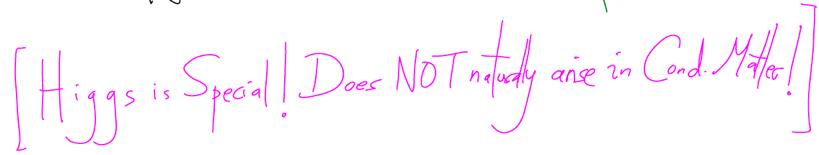 [Higgs is Special! Does NOT naturally arise in Cond. Matter!]